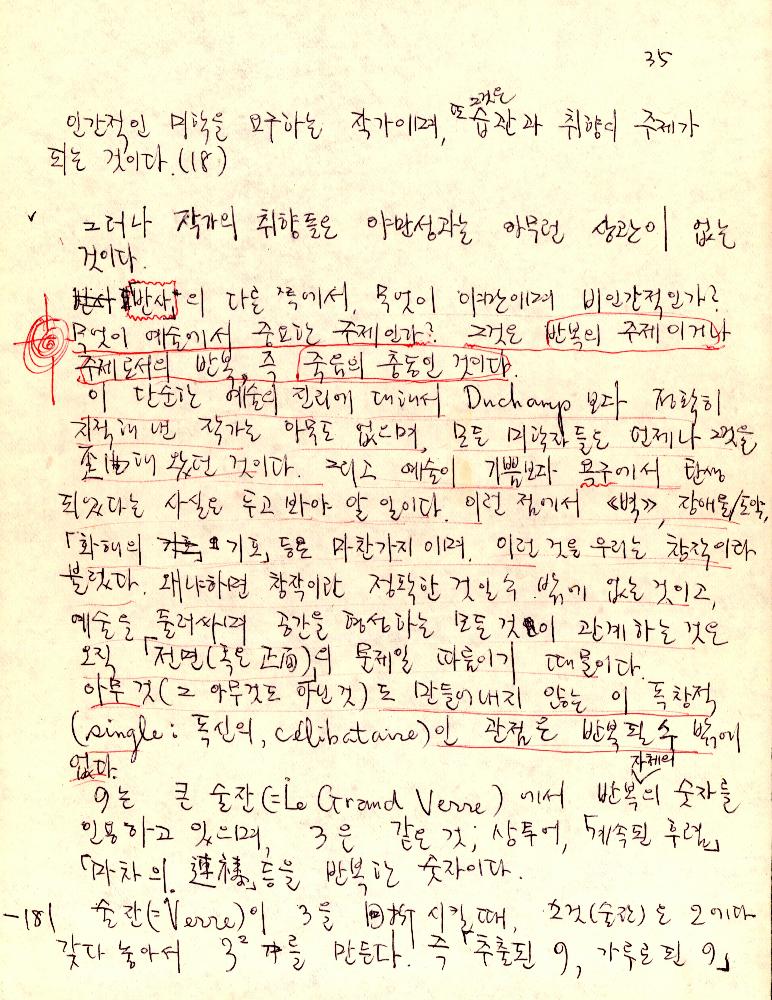 35
인간적인 미학을 요구하는 작가이며, 또 그것은 습관과 취향이 주제가
되는 것이다.(18)
그러나 작가의 취향들은 야만성과는 아무런 상관이 없는
것이다.
"반사"의 다른 쪽에서, 무엇이 인간이며 비인간적인가?
무엇이 예술에서 중요한 주제인가? 그것은 반복의 주제이거나
주제로서의 반복, 즉 죽음의 충동인 것이다.
이 단순한 예술의 진리에 대해서 Duchamp 보다 정확히
지적해 낸 작가는 아무도 없으며, 모든 미학자들도 언제나 그것을
歪曲해 왔던 것이다. 그리고 예술이 기쁨보다 욕구에서 탄생
되었다는 사실은 두고 봐야 알 일이다. 이런 점에서 《벽》, 장애물/도약,
「화해의 기포」 등은 마찬가지이며, 이런 것을 우리는 창작이라
불렀다. 왜냐하면 창작이란 정확한 것일 수 밖에 없는 것이고,
예술을 둘러싸며 공간을 형성하는 모든 것이 관계하는 것은
오직 「전면(혹은 正面)」의 문제일 따름이기 때문이다.
아무 것(그 아무것도 아닌 것)도 만들어내지 않는 이 독창적
(single: 독신의, célibataire)인 관점은 반복될 수 밖에
없다.
9는 큰 술잔(=Le Grand Verre)에서 반복 자체의 숫자를
인용하고 있으며, 3은 같은 것; 상투어, 「계속된 후렴」
「마차의 連禱」등을 반복하는 숫자이다.
-18( 술잔(=Verre)이 3을 回折시킬 때, 그것(술잔)은 2에다
갖다 놓아서 3²를 만든다. 즉 「추출된 9, 가루로 된 9」